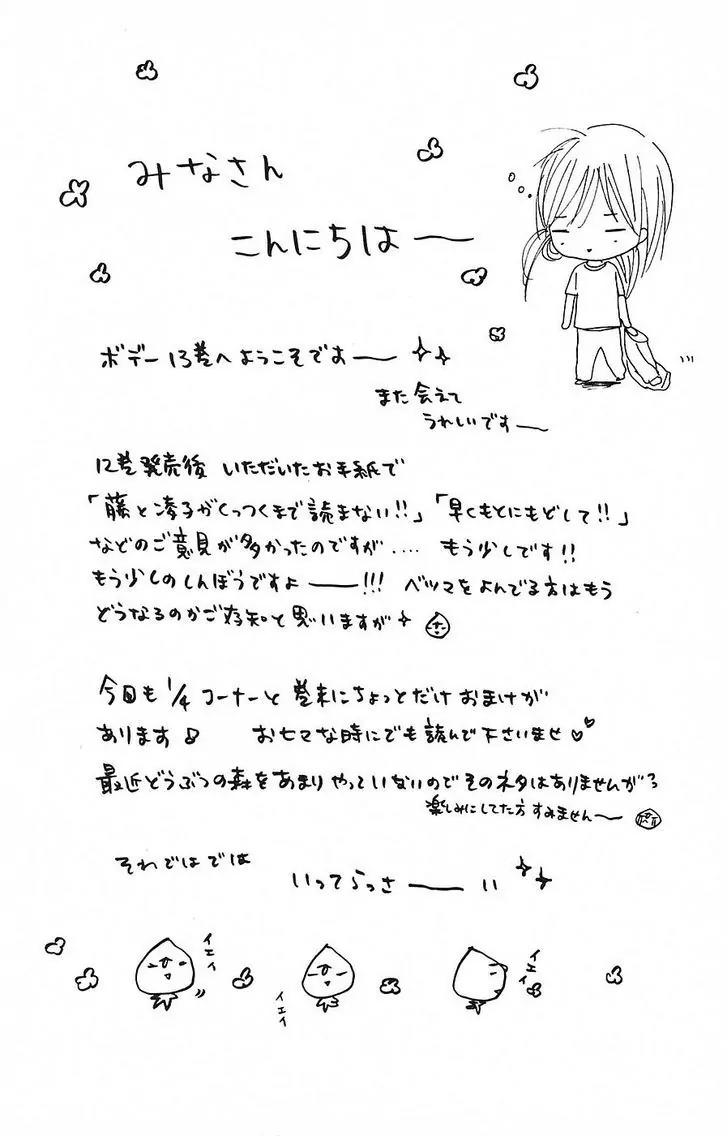 みなさん
こんにちは ――
ボデー13巻へようこそです――
また会えて
うれしいです――
12巻発売後 いただいたお手紙で
「藤と凌子がくっつくまで読まない!!」「早くもとにもどして!!」
などのご意見が多かったのですが‥‥ もう少しです!!
もう少しのしんぼうですよ――!!! ベツマをよんでる方はもう
どうなるのかご存知と思いますが
今回も 1/4 コーナーと 巻末にちょっとだけ おまけが
あります♪ おヒマな時にでも 読んで下さいませ♡♡
最近どうぶつの森をあまりやっていないので そのネタはありませんが
楽しみにしてた方 すみません〜
それではでは
いってらっさ―― い
イエイ
イエイ
イエイ